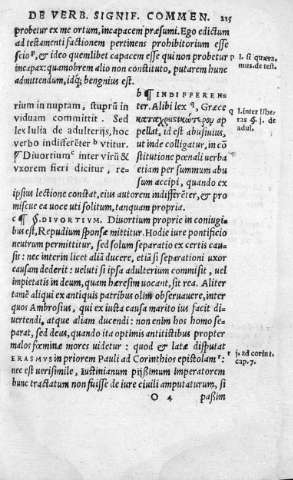 DE VERB. SIGNIF. COMMEN. 215
probetur ex me ortum, incapacem præsumi. Ego edictum
ad testamenti factionem pertinens prohibitorium esse
scio, & ideo quemlibet capacem esse qui non probetur
incapax: quamobrem alio non constituto, putarem hunc
admittendum, idq; benignius est.
b ¶ INDIFFEREN
rium in nuptam, stuprū in
viduam committit. Sed
lex Iulia de adulterijs, hoc
verbo indifferēter b vtitur.
¶ Diuortium c inter virū &
vxorem fieri dicitur, re-
ter. Alibi lex q, Græce
καταχρηστικώτερον ap
pellat, id est abusiuius,
ut inde colligatur, in cō
stitutione pœnali uerba
etiam per summum abu
sum accipi, quando ex
ipsius lectione constat, eius autorem indifferēter, & pro
miscue ea uoce uti solitum, tanquam propria.
c ¶ DIVORTIVM. Diuortium proprie in coniugi
bus est, Repudium sponsæ mittitur. Hodie iure pontificio
neutrum permittitur, sed solum separatio ex certis cau-
sis: nec interim licet aliā ducere, etiā si separationi uxor
causam dederit: ueluti si ipsa adulterium commisit, uel
impietatis in deum, quam hæresim uocant, sit rea. Aliter
tamē aliqui ex antiquis patribus olim obseruauere, inter
quos Ambrosius, qui ex iusta causa marito ius facit di-
uertendi, atque aliam ducendi: non enim hos homo se-
parat, sed deus, quando ita optimis antistitibus propter
malos fœminæ mores uidetur: quod & late disputat
ERASMVS in priorem Pauli ad Corinthios epistolam r:
nec est uerisimile, Iustinianum pijßimum imperatorem
hunc tractatum non fuisse de iure ciuili amputaturum, si
O 4 paßim
mu. de test.
q l. inter liber
adul.
r j. ad corint.
cap. 7.